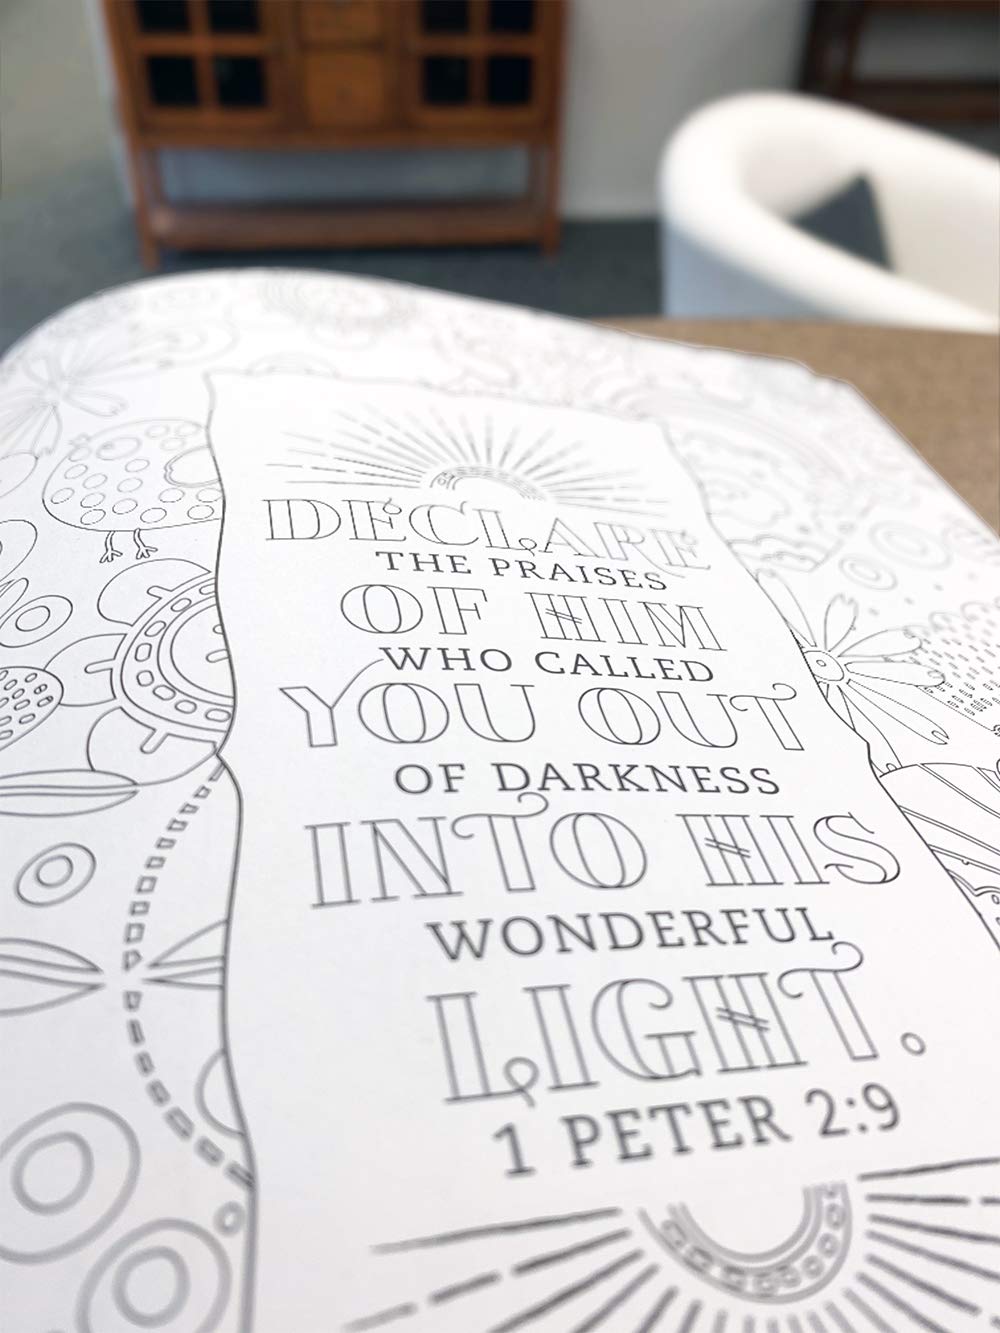 DECLARE
THE PRAISES
OF HIM
WHO CALLED
YOU OUT
OF DARKNESS
INTO HIS
WONDERFUL
LIGHT.
1 PETER 2:9